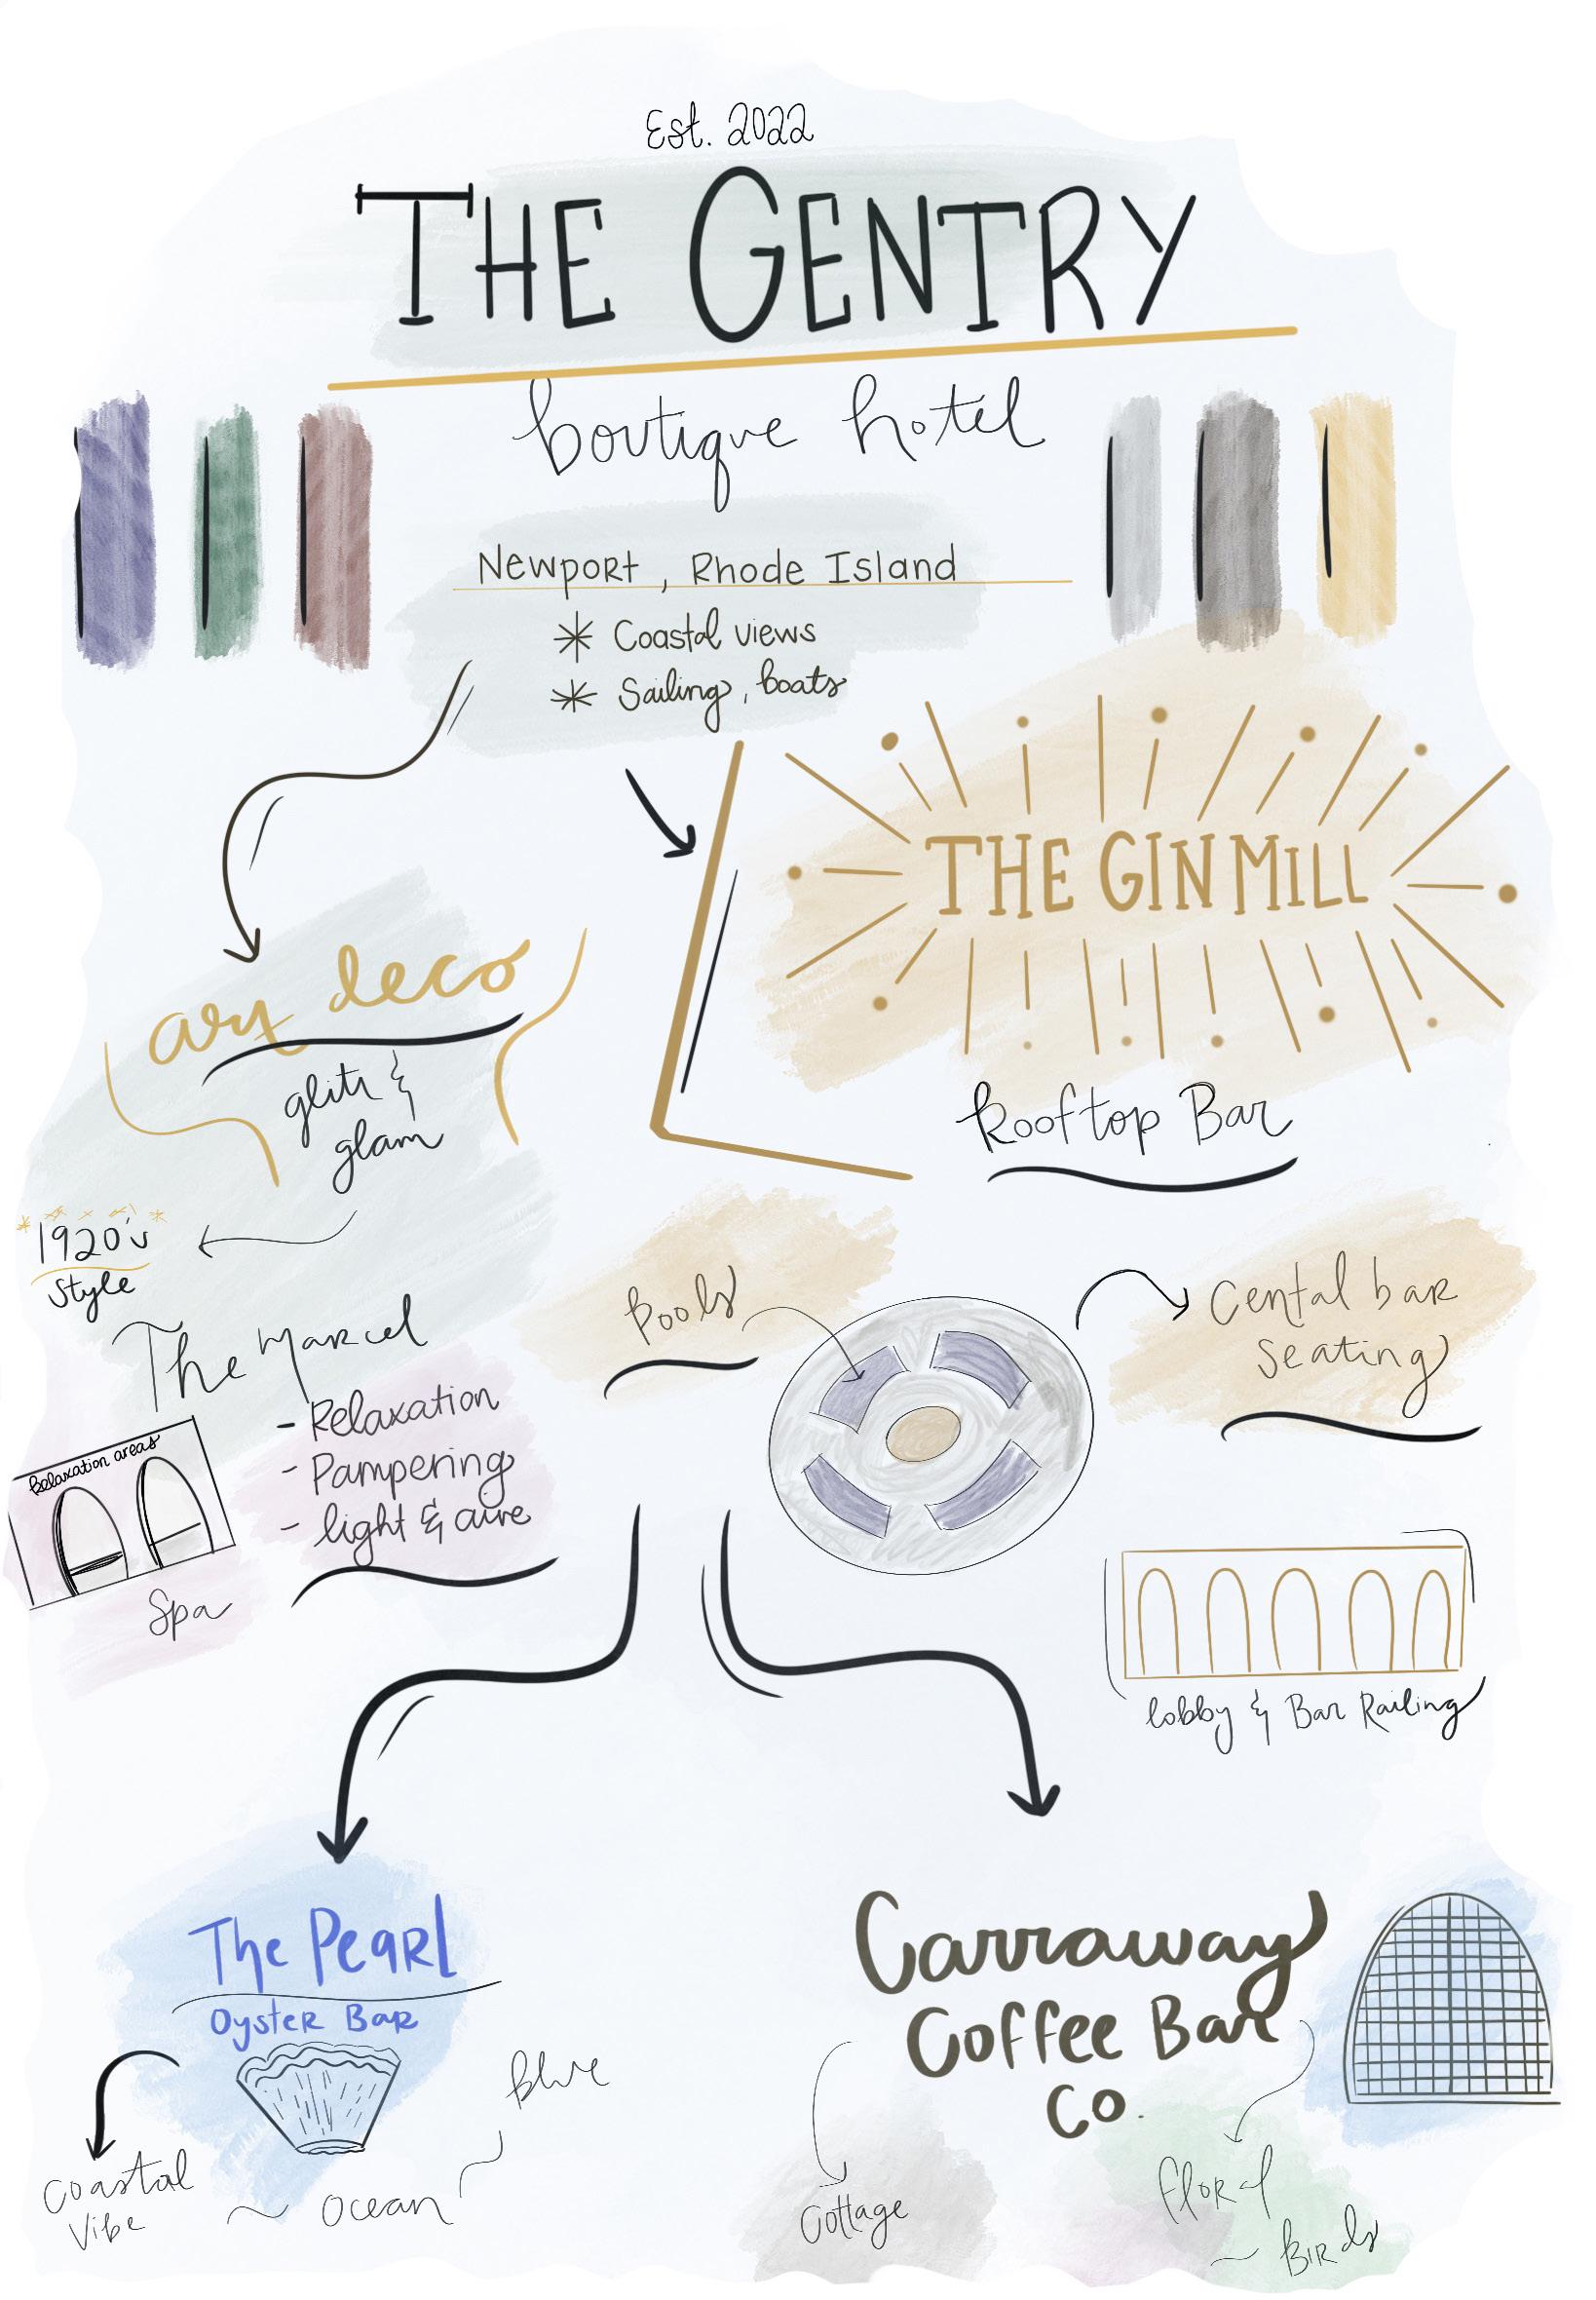 Est. 2022
THE GENTRY
boutique hotel
Newport, Rhode Island
* Coastal views
* Sailing, boats
THE GIN MILL
Rooftop Bar
art deco
glitz &
glam
1920's
Style
The Marcel
- Relaxation
- Pampering
- light & aire
Relaxation areas
Spa
Pools
Cental bar
Seating
lobby & Bar Railing
The Pearl
Oyster Bar
Coastal
Vibe
~ Ocean
Blue
Carraway
Coffee Bar
Co.
Cottage
Floral
~ Birds